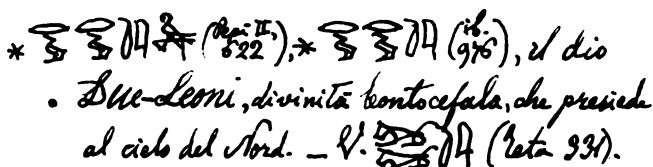 * (Pepi II, 622), * (ib. 976), il dio
. Due-Leoni, divinità leontocefala, che presiede
al cielo del Nord. – V. (Teta 331).